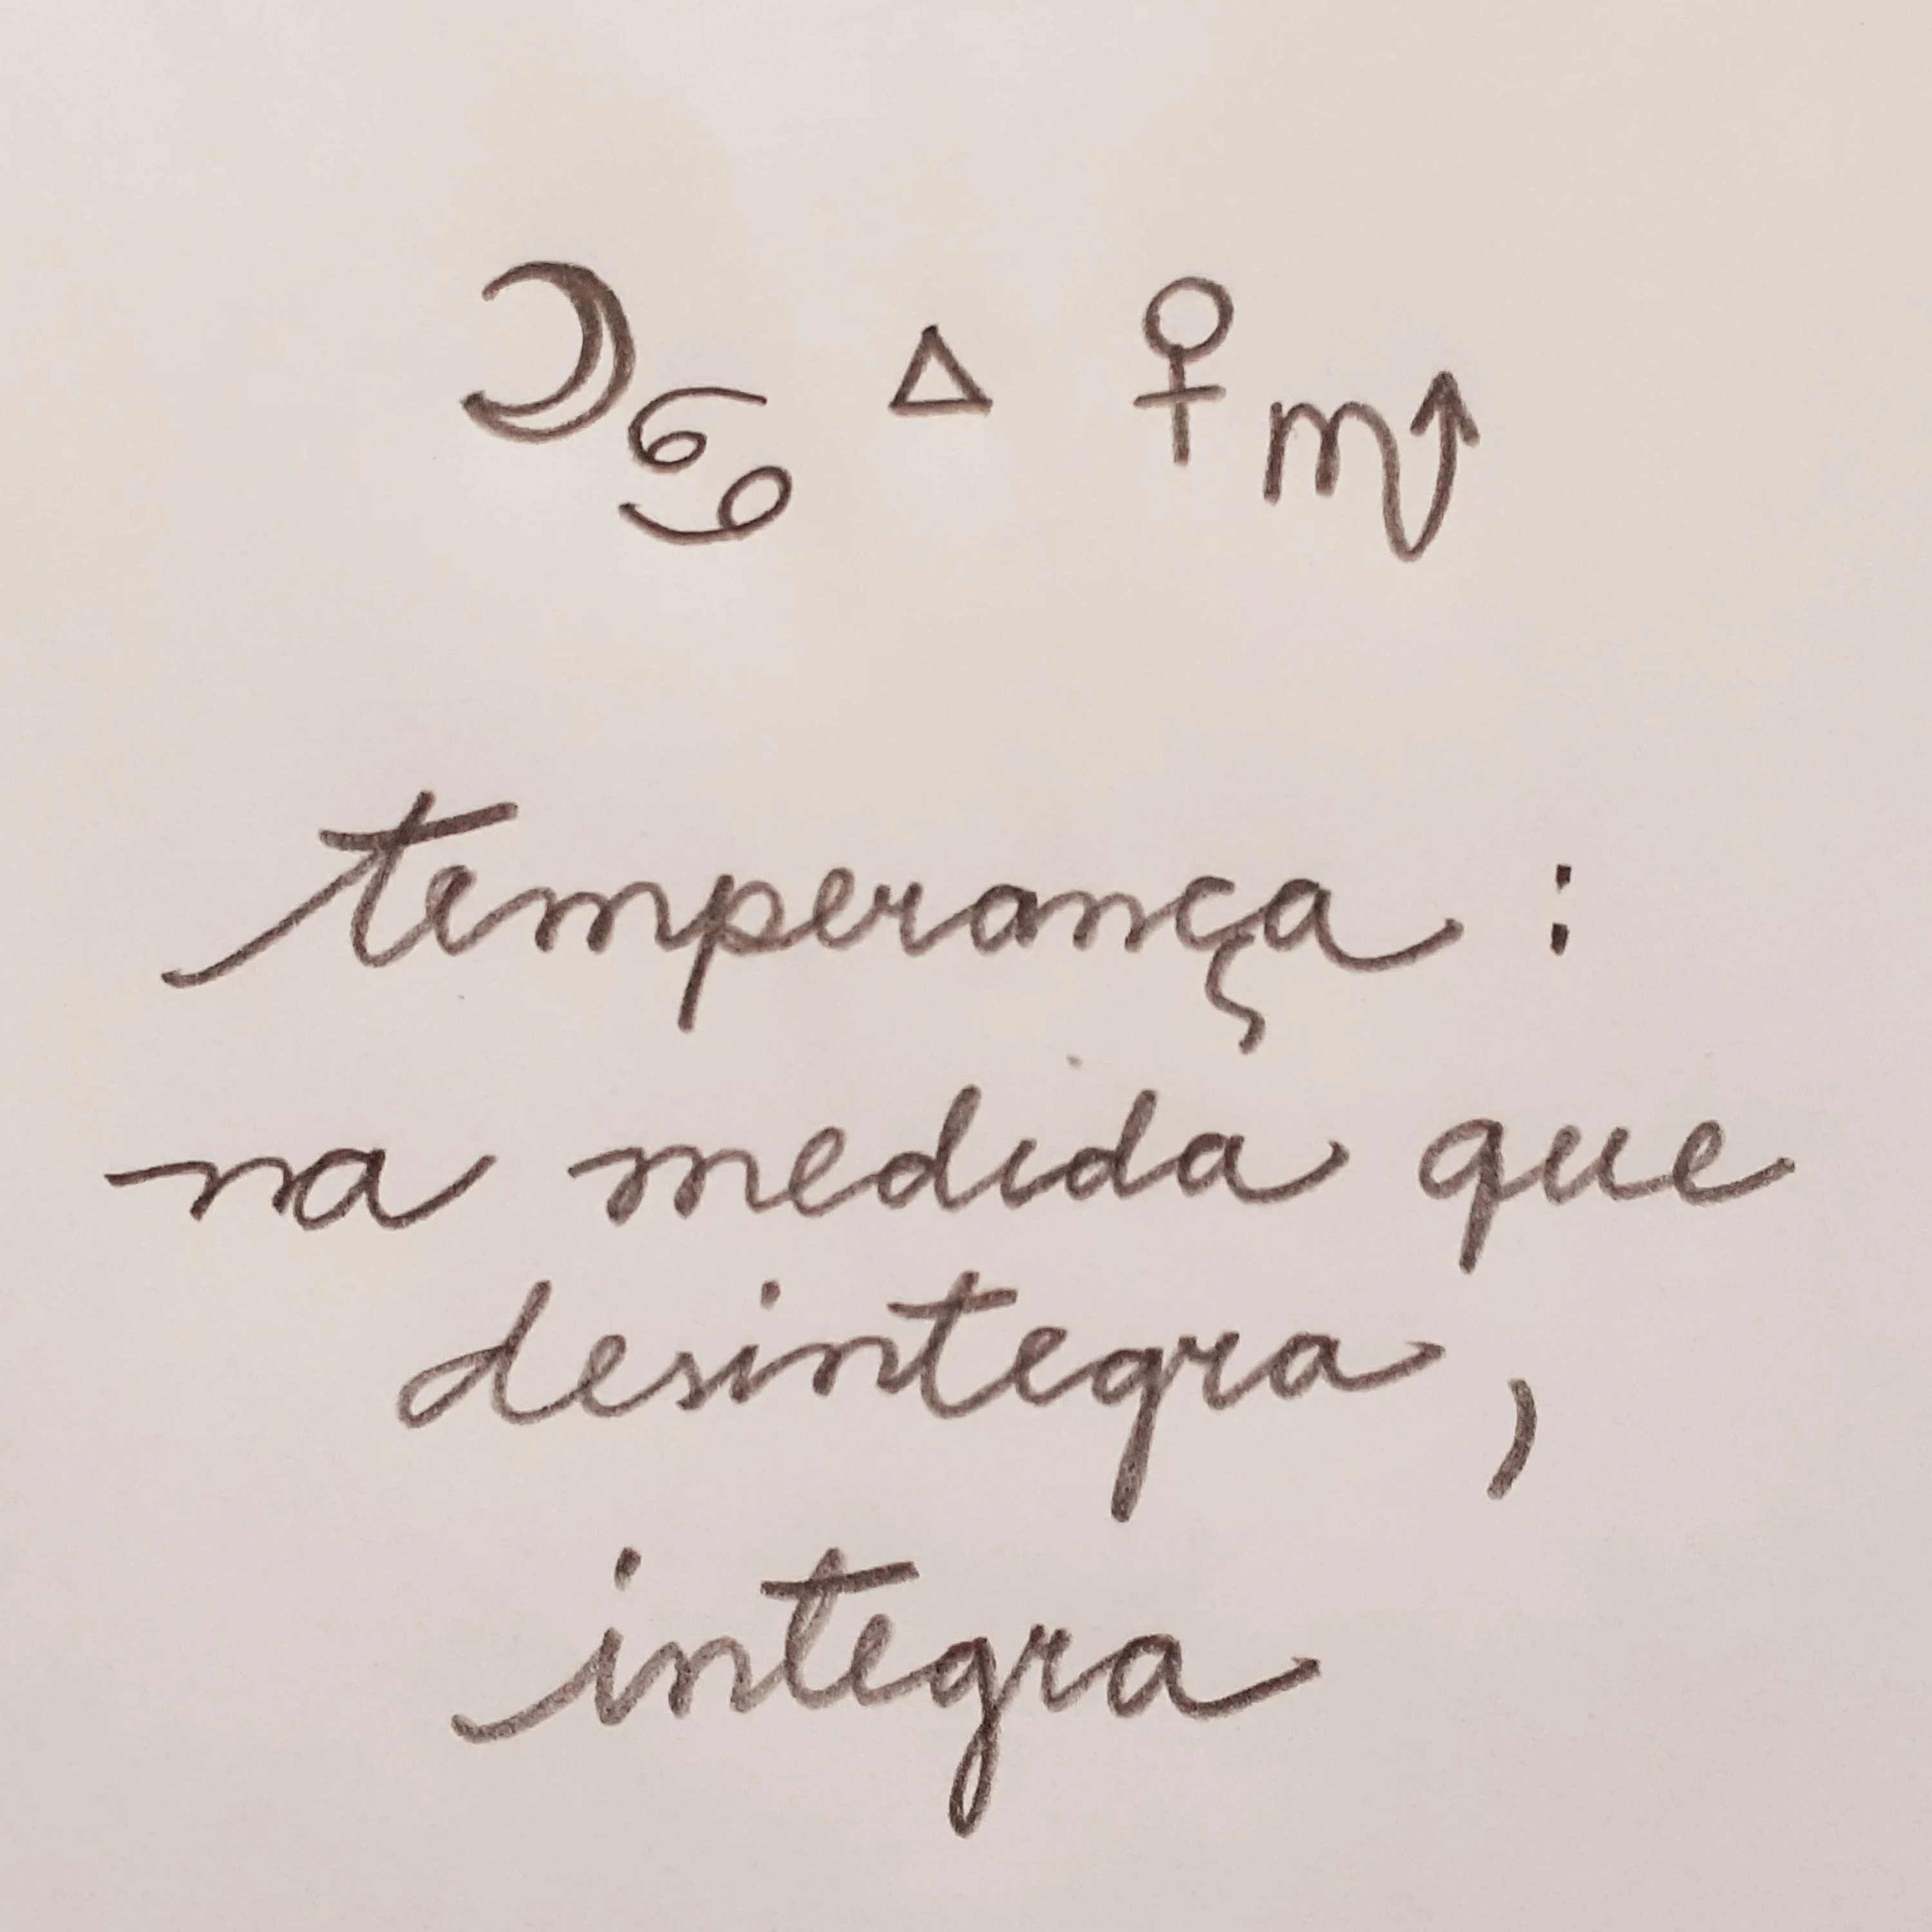 ☽♋ △ ♀♏
temperança :
na medida que
desintegra,
integra